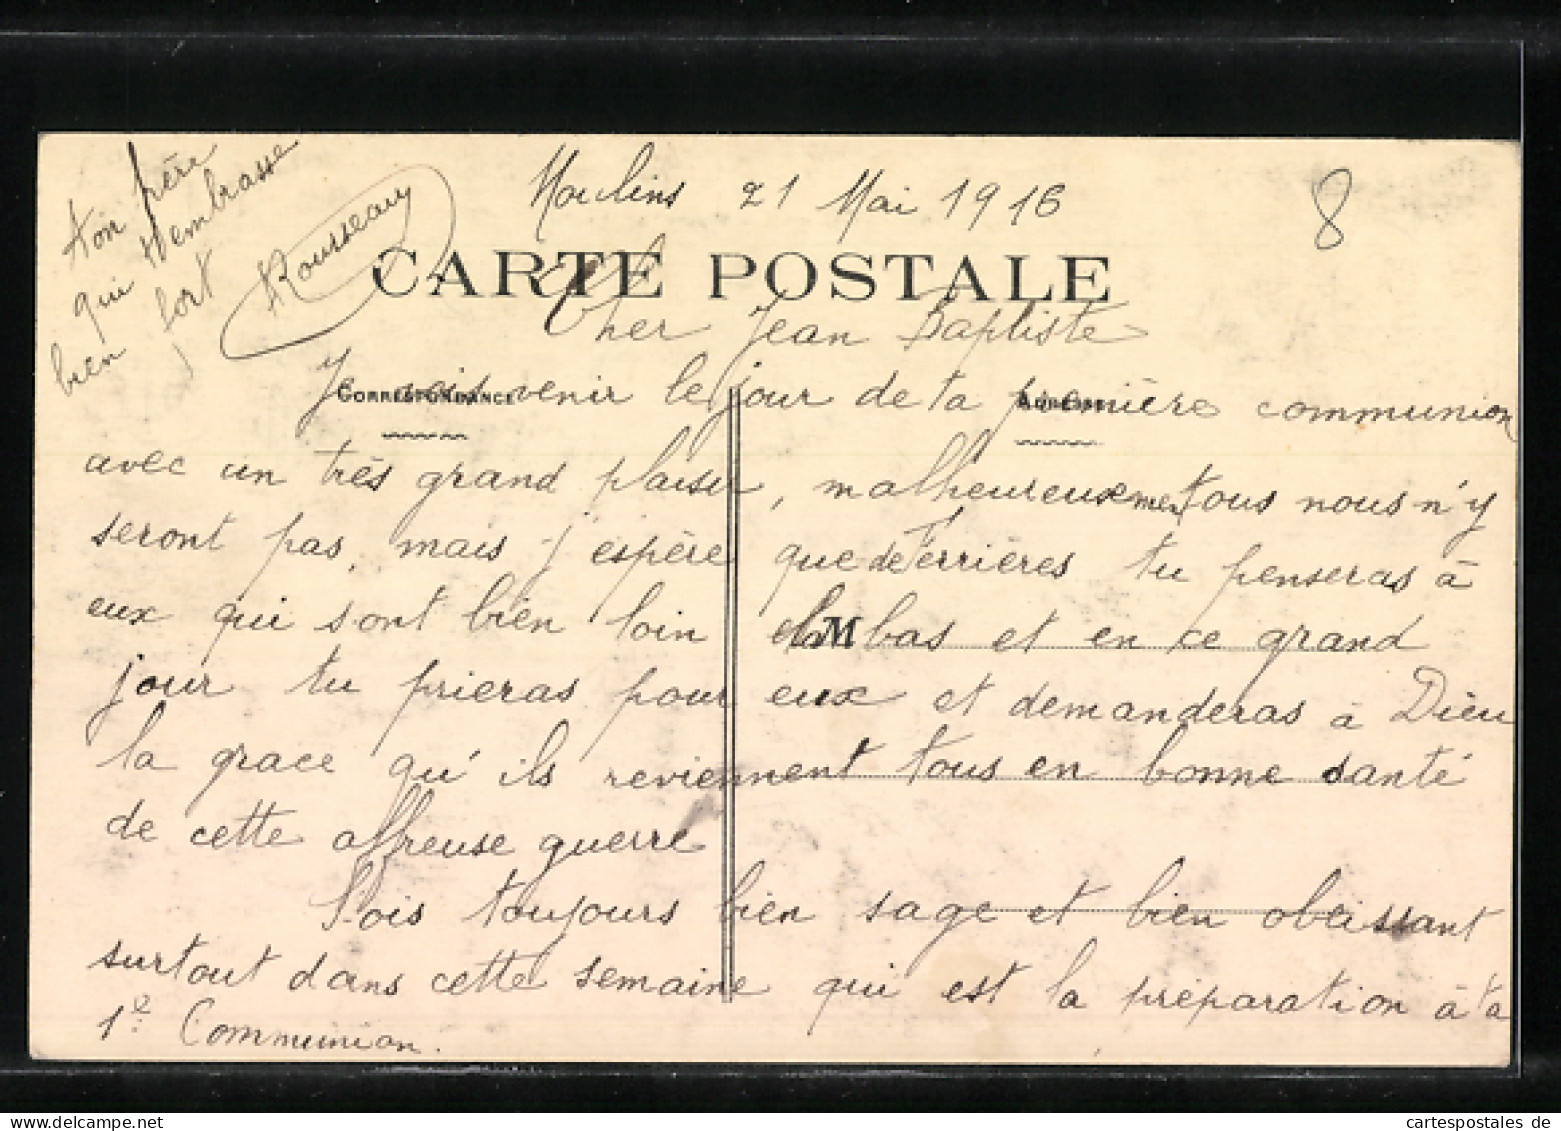 Moulins 21 Mai 1916
8
CARTE POSTALE
Cher Jean Baptiste
CORRESPONDANCE
ADRESSE
Je vois venir le jour de ta première communion
avec un très grand plaisir, malheureusement tous nous n'y
seront pas, mais j'espère que de Ferrières tu penseras à
eux qui sont bien loin là bas et en ce grand
M
jour tu prieras pour eux et demanderas à Dieu
la grace qu'ils reviennent tous en bonne santé
de cette affreuse guerre
Sois toujours bien sage et bien obeissant
surtout dans cette semaine qui est la préparation à ta
1e Communion.
Ton père
qui t'embrasse
bien fort
Rousseau
cartespostales de